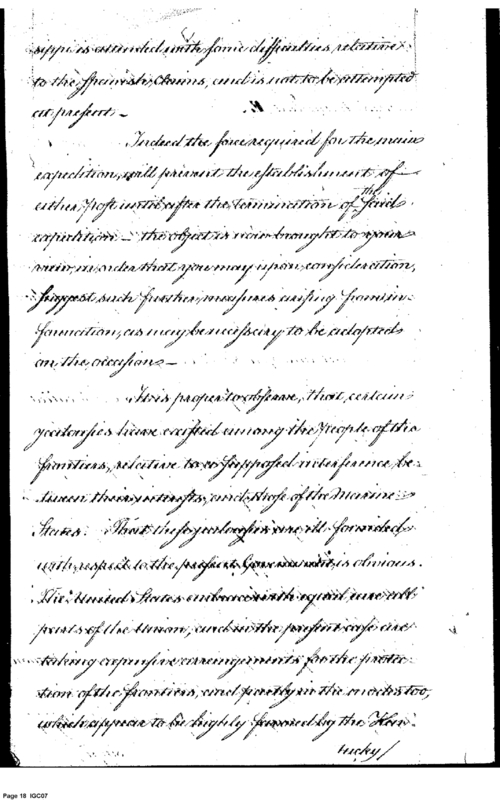 sippi is attended with some difficulties, relative
to the Spanish Claims, and is not to be attempted
at present —
Indeed the force required for the main
expedition, will prevent the establishment of
either post until after the termination of the said
expedition — the object is now brought to your
view, in order that you may upon consideration,
suggest such further measures arising from in-
formation, as may be necessary to be adopted
on the occasion —
It is proper to observe, that certain
jealousies have existed among the People of the
frontiers, relative to a supposed interference be-
tween their interests, and those of the Marine
States. That these jealousies are ill founded
with respect to the present Government, is obvious.
The United States embrace with equal care all
parts of the Union, and in the present case are
taking expensive arrangements for the protec-
tion of the frontiers, and partly in the modes too,
which appear to be highly favored by the Ken-
tucky/
Page 18 IGC07